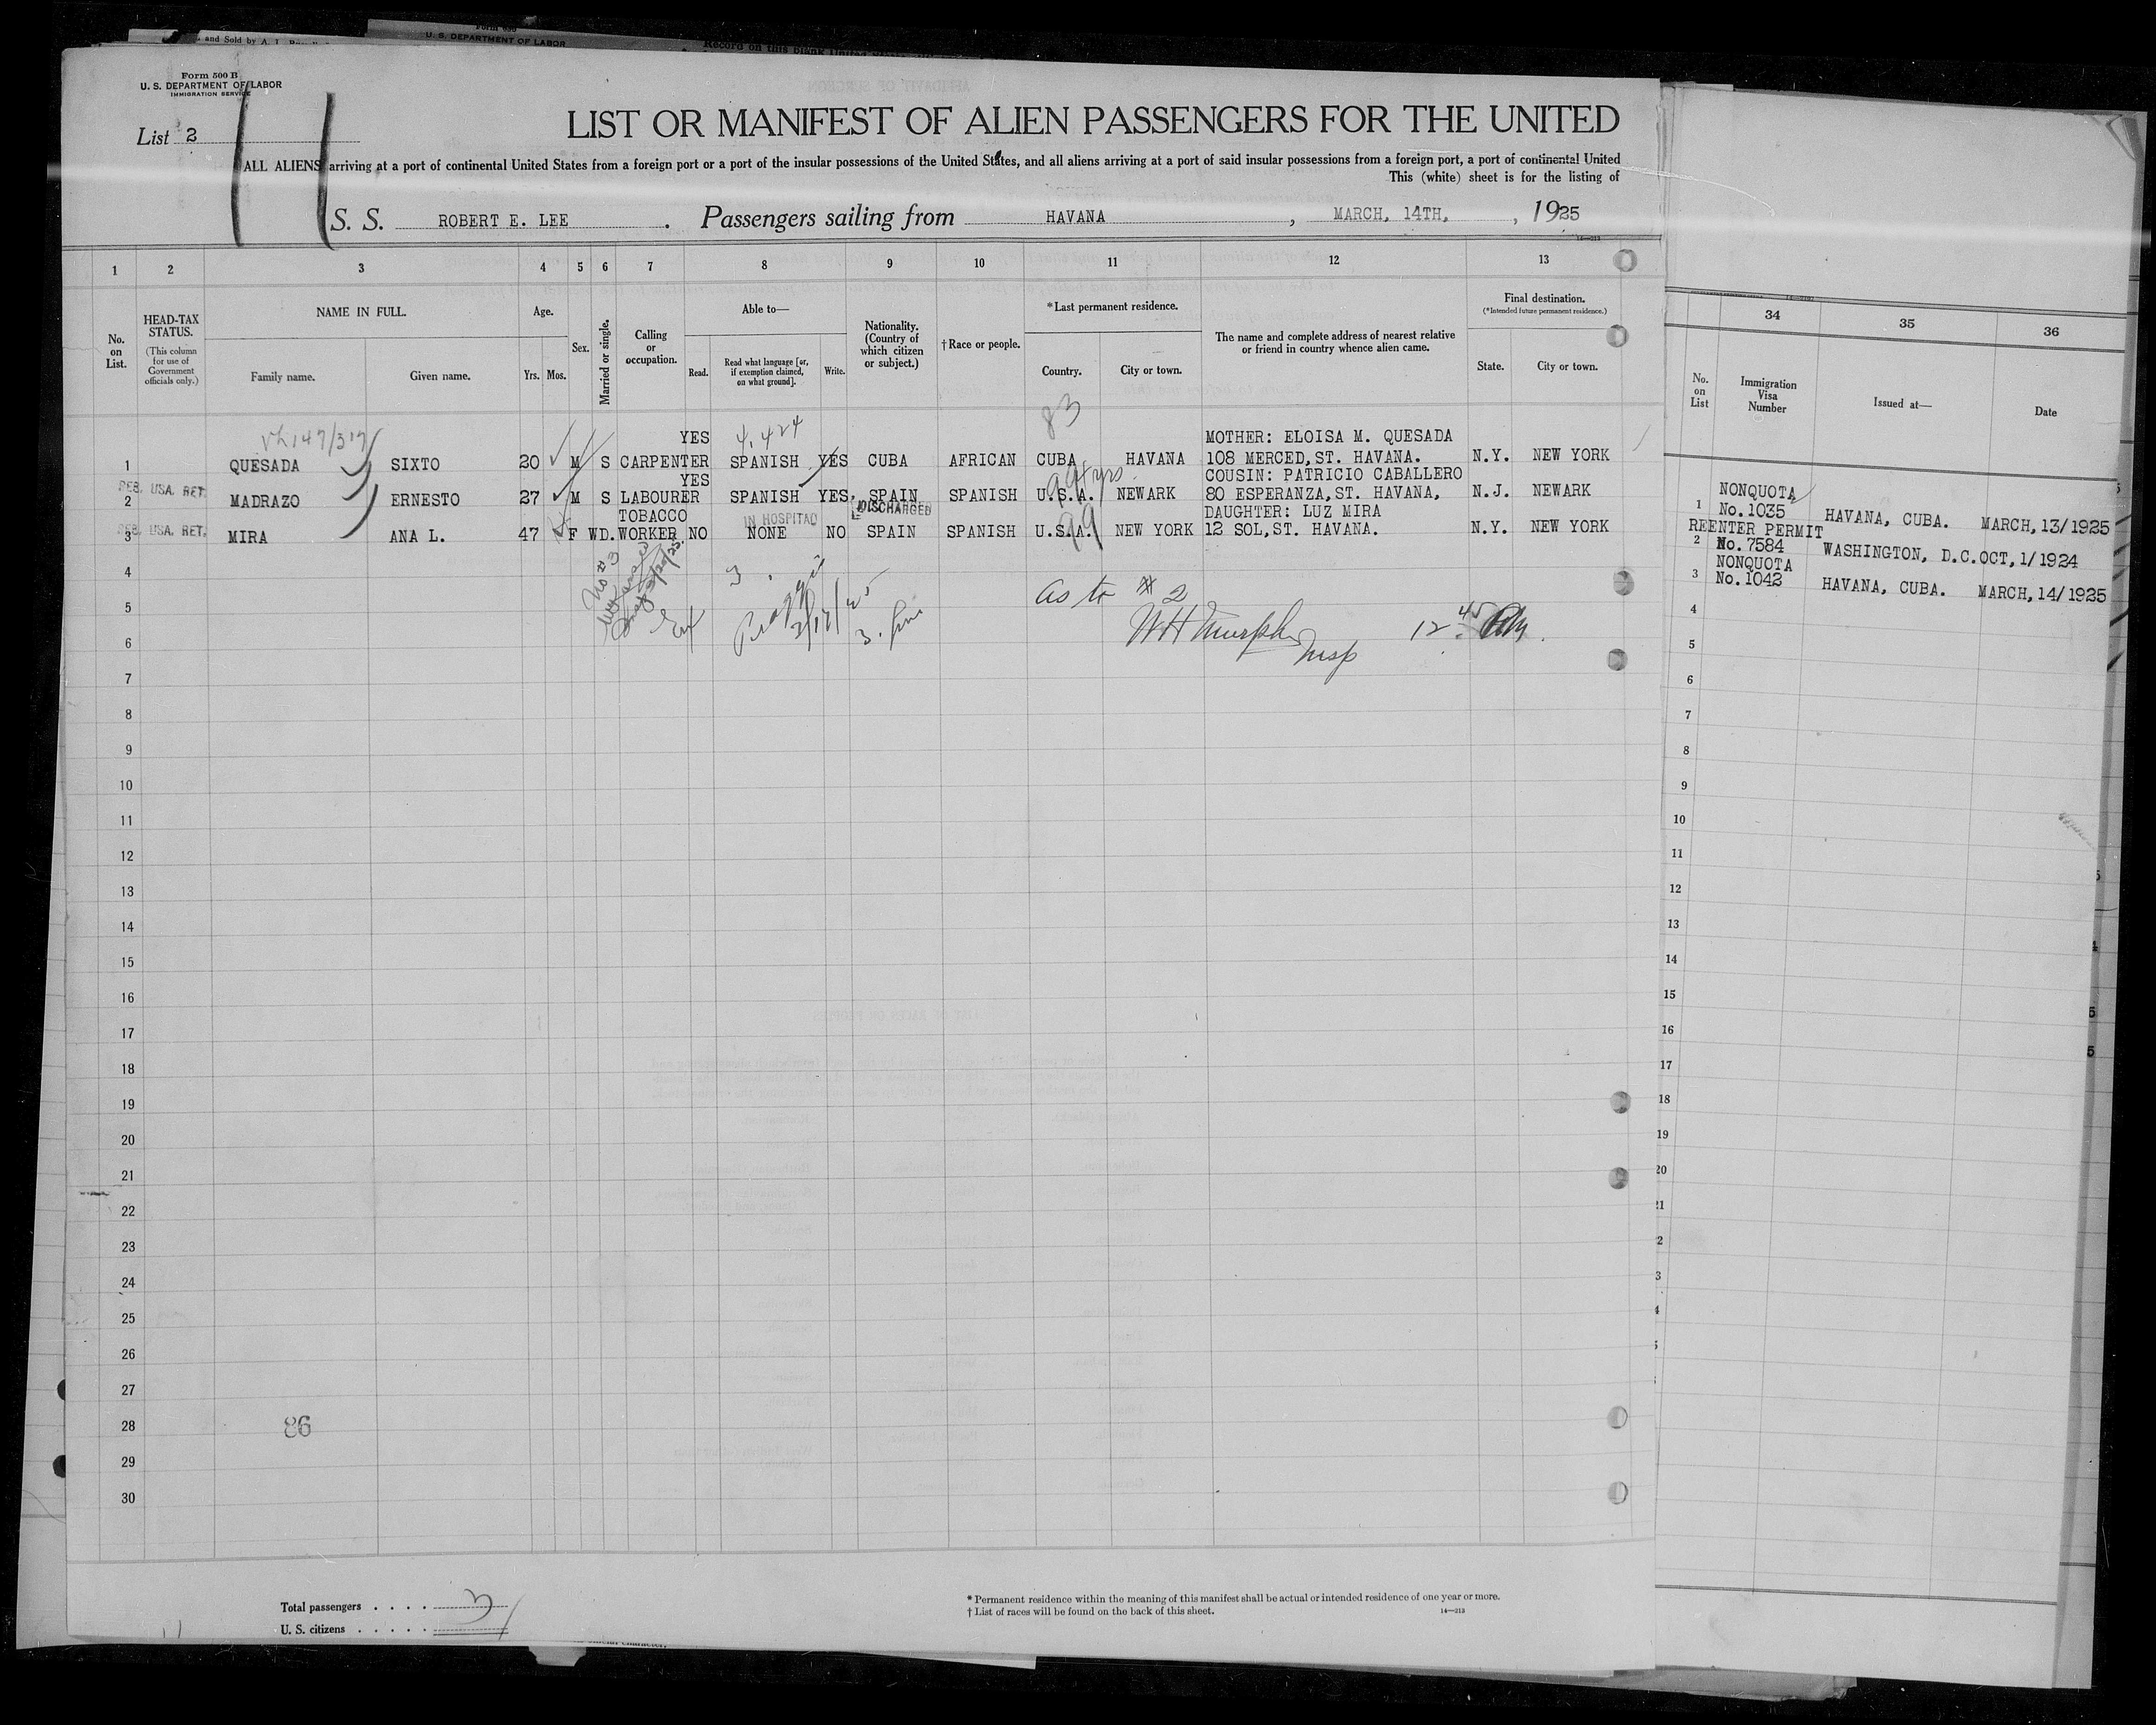 Form 500 B
U. S. DEPARTMENT OF LABOR
IMMIGRATION SERVICE
U. S. DEPARTMENT OF LABOR
List 2
LIST OR MANIFEST OF ALIEN PASSENGERS FOR THE UNITED
ALL ALIENS arriving at a port of continental United States from a foreign port or a port of the insular possessions of the United States, and all aliens arriving at a port of said insular possessions from a foreign port, a port of continental United
This (white) sheet is for the listing of
S. S. ROBERT E. LEE . Passengers sailing from HAVANA , MARCH, 14TH, , 1925
1 2 3 4 5 6 7 8 9 10 11 12 13
No. on List.
HEAD-TAX STATUS.
(This column for use of Government officials only.)
NAME IN FULL.
Family name. Given name.
Age.
Yrs. Mos.
Sex.
Married or single.
Calling or occupation.
Able to—
Read.
Read what language [or, if exemption claimed, on what ground].
Write.
Nationality. (Country of which citizen or subject.)
† Race or people.
*Last permanent residence.
Country. City or town.
The name and complete address of nearest relative or friend in country whence alien came.
Final destination.
(*Intended future permanent residence.)
State. City or town.
34 35 36
No. on List
Immigration Visa Number
Issued at—
Date
83
4.424
YES MOTHER: ELOISA M. QUESADA
1 QUESADA SIXTO 20 M S CARPENTER SPANISH YES CUBA AFRICAN CUBA HAVANA 108 MERCED,ST. HAVANA. N.Y. NEW YORK
YES COUSIN: PATRICIO CABALLERO
USA. RET.
2 MADRAZO ERNESTO 27 M S LABOURER SPANISH YES SPAIN SPANISH U.S.A. NEWARK 80 ESPERANZA,ST. HAVANA, N.J. NEWARK
DISCHARGED
TOBACCO IN HOSPITAL DAUGHTER: LUZ MIRA
USA. RET.
3 MIRA ANA L. 47 F WD. WORKER NO NONE NO SPAIN SPANISH U.S.A. NEW YORK 12 SOL,ST. HAVANA. N.Y. NEW YORK
NONQUOTA
1 No.1035 HAVANA, CUBA. MARCH,13/1925
REENTER PERMIT
2 No.7584 WASHINGTON, D.C. OCT,1/1924
NONQUOTA
3 No.1042 HAVANA, CUBA. MARCH,14/1925
as to # 2
W H Murphy
Insp
12 45 PM
4
5
6
7
8
9
10
11
12
13
14
15
16
17
18
19
20
21
22
23
24
25
26
27
28
29
30
4
5
6
7
8
9
10
11
12
13
14
15
16
17
18
19
20
86
Total passengers . . . . 3
U. S. citizens . . . . .
* Permanent residence within the meaning of this manifest shall be actual or intended residence of one year or more.
† List of races will be found on the back of this sheet.
14—213